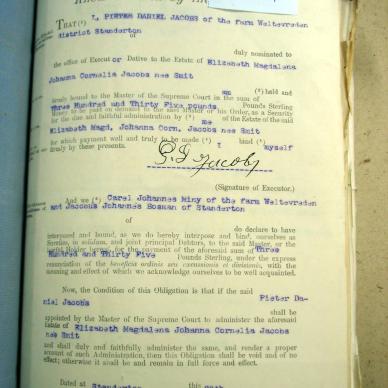 THAT (¹) I, PIETER DANIEL JACOBS of the farm Weltevreden
district Standerton of
duly nominated to
the office of Executor Dative to the Estate of Elizabeth Magdalena
Johanna Cornelia Jacobs nee Smit
am (²) held and
firmly bound to the Master of the Supreme Court in the sum of
Three Hundred and Thirty Five pounds Pounds Sterling
Money to be paid on demand to the said Master or his Order, as a Security
for the due and faithful administration by (³) me of the Estate of the said
Elizabeth Magd, Johanna Corn, Jacobs nee Smit
for which payment well and truly to be made (⁴) I bind (⁵) myself
firmly by these presents.
P D Jacobs
(Signature of Executor.)
And we (⁶) Carel Johannes Miny of the farm Weltevreden
and Jacobus Johannes Bosman of Standerton
of
do declare to have
interposed and bound, as we do hereby interpose and bind, ourselves as
Sureties, in solidum, and joint principal Debtors, to the said Master, or the
lawful Holder hereof, for the payment of the aforesaid sum of Three
Hundred and Thirty Five Pounds Sterling, under the express
renunciation of the beneficia ordinis seu excussionis et divisionis, with the
meaning and effect of which we acknowledge ourselves to be well acquainted.
Now, the Condition of this Obligation is that if the said
Pieter Da-
niel Jacobs shall be
appointed by the Master of the Supreme Court to administer the aforesaid
Estate of Elizabeth Magdalena Johanna Cornelia Jacobs
nee Smit
and shall duly and faithfully administer the same, and render a proper
account of such Administration, then this Obligation shall be void and of no
effect; otherwise it shall be and remain in full force and effect.
Dated at Standerton this